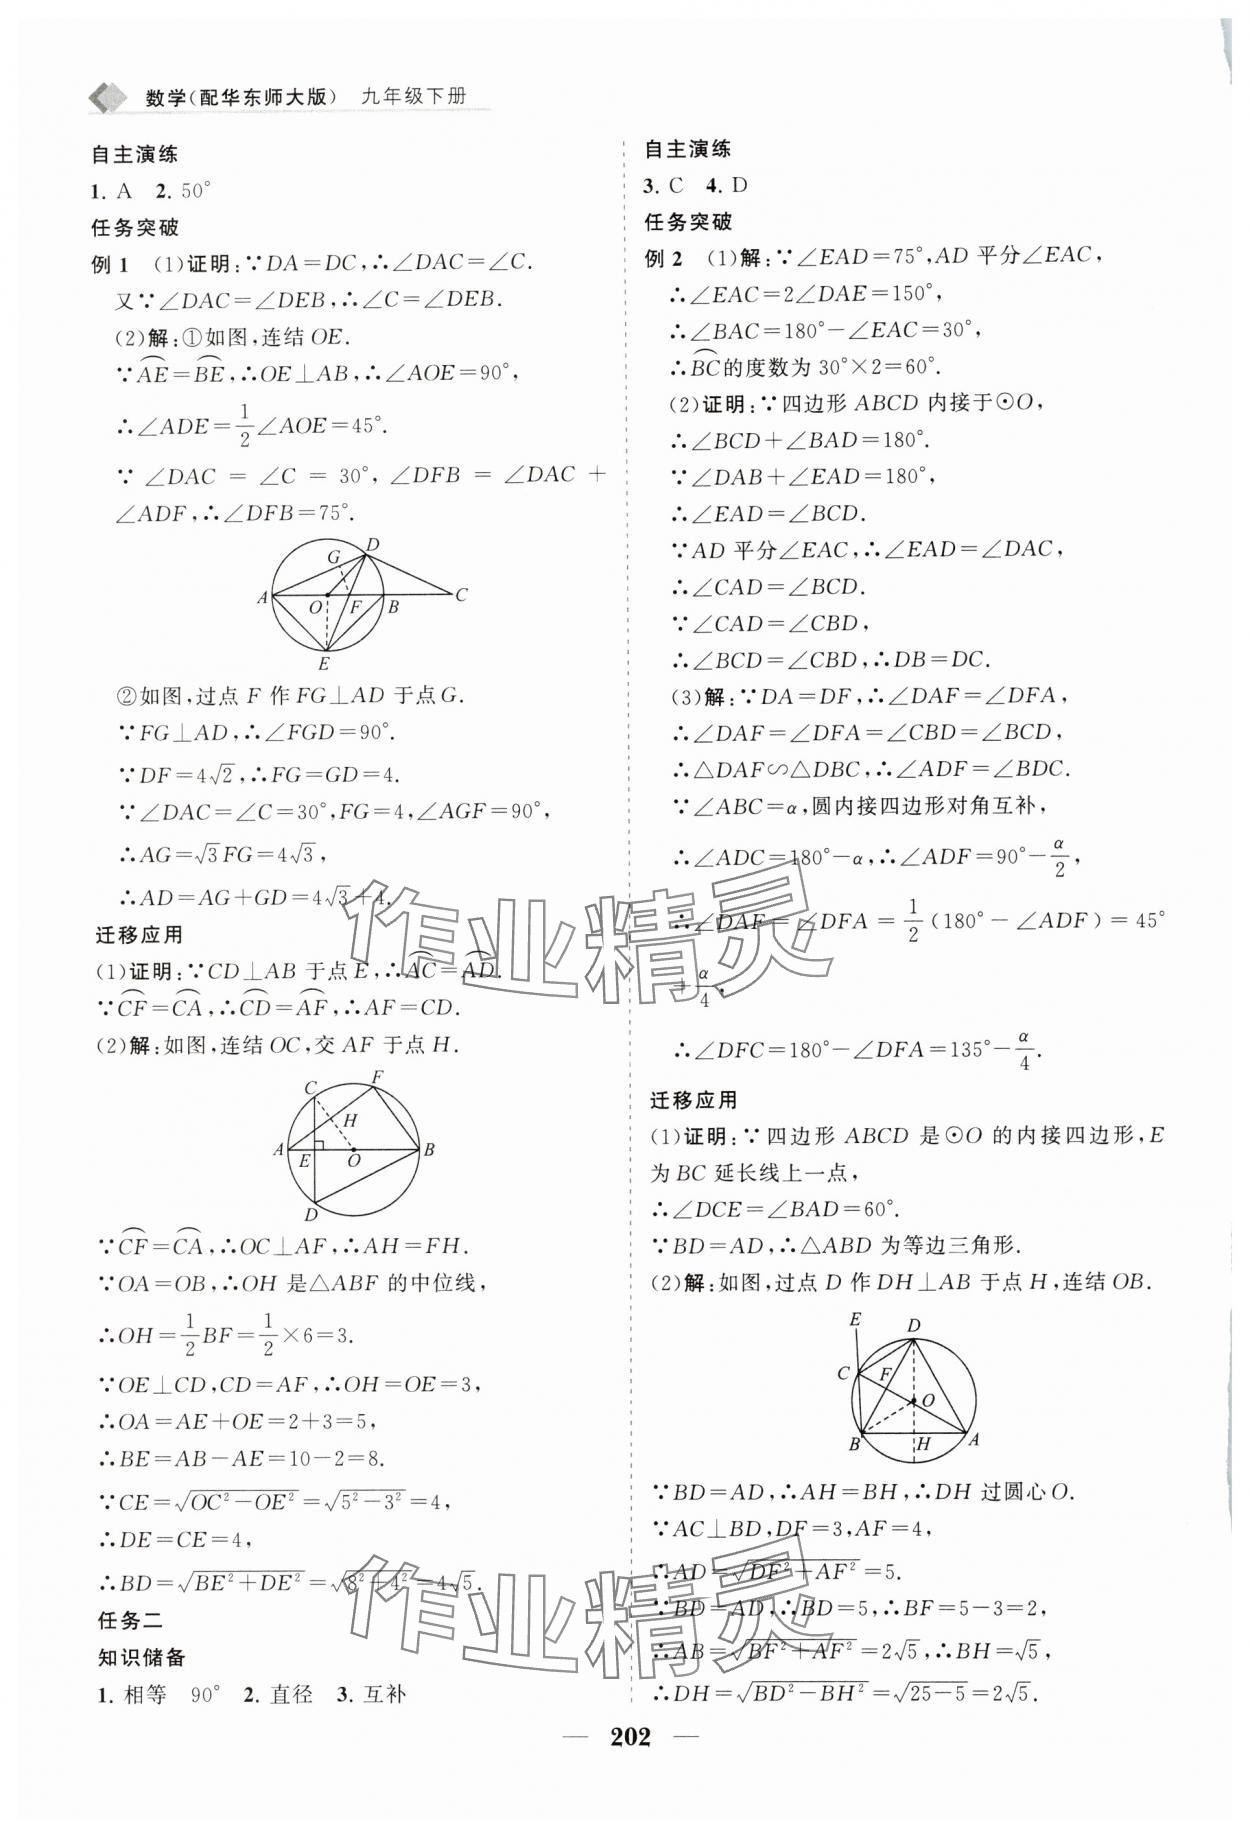 数学(配华东师大版) 九年级下册
自主演练
1. A 2. 50°
任务突破
例1 (1)证明:∵DA=DC,∴∠DAC=∠C.
又∵∠DAC=∠DEB,∴∠C=∠DEB.
(2)解:①如图,连结OE.
∵⌒AE=⌒BE,∴OE⊥AB,∴∠AOE=90°,
∴∠ADE=1/2∠AOE=45°.
∵∠DAC=∠C=30°,∠DFB=∠DAC+
∠ADF,∴∠DFB=75°.
G D
A O F B C
E
②如图,过点F作FG⊥AD于点G.
∵FG⊥AD,∴∠FGD=90°.
∵DF=4√2,∴FG=GD=4.
∵∠DAC=∠C=30°,FG=4,∠AGF=90°,
∴AG=√3FG=4√3,
∴AD=AG+GD=4√3+4.
迁移应用
(1)证明:∵CD⊥AB于点E,∴⌒AC=⌒AD.
∵⌒CF=⌒CA,∴⌒CD=⌒AF,∴AF=CD.
(2)解:如图,连结OC,交AF于点H.
C F
H
A E O B
D
∵⌒CF=⌒CA,∴OC⊥AF,∴AH=FH.
∵OA=OB,∴OH是△ABF的中位线,
∴OH=1/2BF=1/2×6=3.
∵OE⊥CD,CD=AF,∴OH=OE=3,
∴OA=AE+OE=2+3=5,
∴BE=AB-AE=10-2=8.
∵CE=√(OC²-OE²)=√(5²-3²)=4,
∴DE=CE=4,
∴BD=√(BE²+DE²)=√(8²+4²)=4√5.
任务二
知识储备
1. 相等 90° 2. 直径 3. 互补
自主演练
3. C 4. D
任务突破
例2 (1)解:∵∠EAD=75°,AD平分∠EAC,
∴∠EAC=2∠DAE=150°,
∴∠BAC=180°-∠EAC=30°,
∴⌒BC的度数为30°×2=60°.
(2)证明:∵四边形ABCD内接于⊙O,
∴∠BCD+∠BAD=180°.
∵∠DAB+∠EAD=180°,
∴∠EAD=∠BCD.
∵AD平分∠EAC,∴∠EAD=∠DAC,
∴∠CAD=∠BCD.
∵∠CAD=∠CBD,
∴∠BCD=∠CBD,∴DB=DC.
(3)解:∵DA=DF,∴∠DAF=∠DFA,
∴∠DAF=∠DFA=∠CBD=∠BCD,
∴△DAF∽△DBC,∴∠ADF=∠BDC.
∵∠ABC=α,圆内接四边形对角互补,
∴∠ADC=180°-α,∴∠ADF=90°-α/2,
∴∠DAF=∠DFA=1/2(180°-∠ADF)=45°
+α/4.
∴∠DFC=180°-∠DFA=135°-α/4.
迁移应用
(1)证明:∵四边形ABCD是⊙O的内接四边形,E
为BC延长线上一点,
∴∠DCE=∠BAD=60°.
∵BD=AD,∴△ABD为等边三角形.
(2)解:如图,过点D作DH⊥AB于点H,连结OB.
E D
C F
O
B H A
∵BD=AD,∴AH=BH,∴DH过圆心O.
∵AC⊥BD,DF=3,AF=4,
∴AD=√(DF²+AF²)=5.
∵BD=AD,∴BD=5,∴BF=5-3=2,
∴AB=√(BF²+AF²)=2√5,∴BH=√5,
∴DH=√(BD²-BH²)=√(25-5)=2√5.
作业精灵
作业精灵
— 202 —